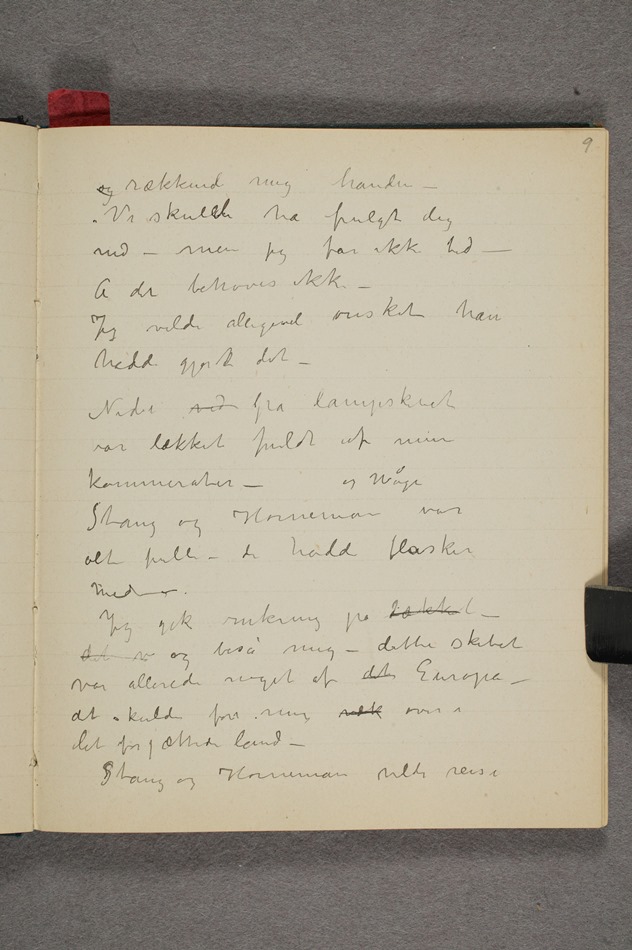 9
og rækkend mig handen –
Vi skulde ha fulgt dig
ned – men jeg har ikke tid –
A det behøves ikke –
Jeg vilde alligevel ønsket han
hadde gjort det –
Nede ved fra lampeskæret
var dækket fuldt af mine
kammerater –
og Wåge
Stang og Horneman var
alt fulle – de hadde flasker
med – .
Jeg gik omkring på dækket –
det v og beså mig – dette skibet
var allerede noget af det Europa –
det skulde føre mig væk over i
det forjættede land –
Stang og Horneman vilde reise